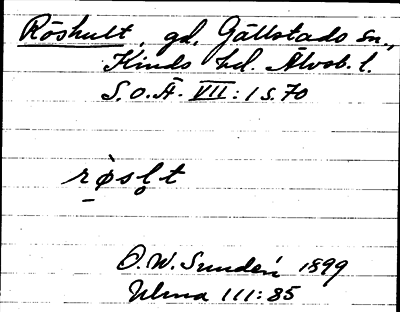 Röshult, gd, Gällstads sn.,
Kinds hd. Älvsb. l.
S.O.Ä. VII:1 S.70
rø̀sl̥t
O.W. Sundén 1899
Ulma 111:85